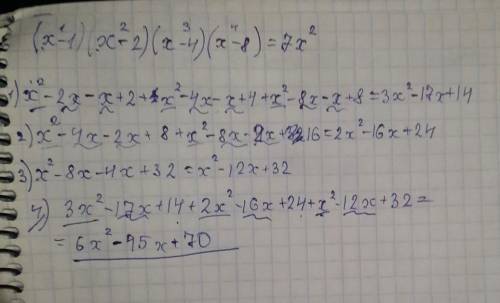 (x-1)(x-2)(x-4)(x-8)=7x²
1 2 3 4
1) x²-2x-x+2+x²-4x-x+4+x²-8x-x+8=3x²-17x+14
2) x²-4x-2x+8+x²-8x-2x+16=2x²-16x+24
3) x²-8x-4x+32=x²-12x+32
4) 3x²-17x+14+2x²-16x+24+x²-12x+32=
=6x²-45x+70